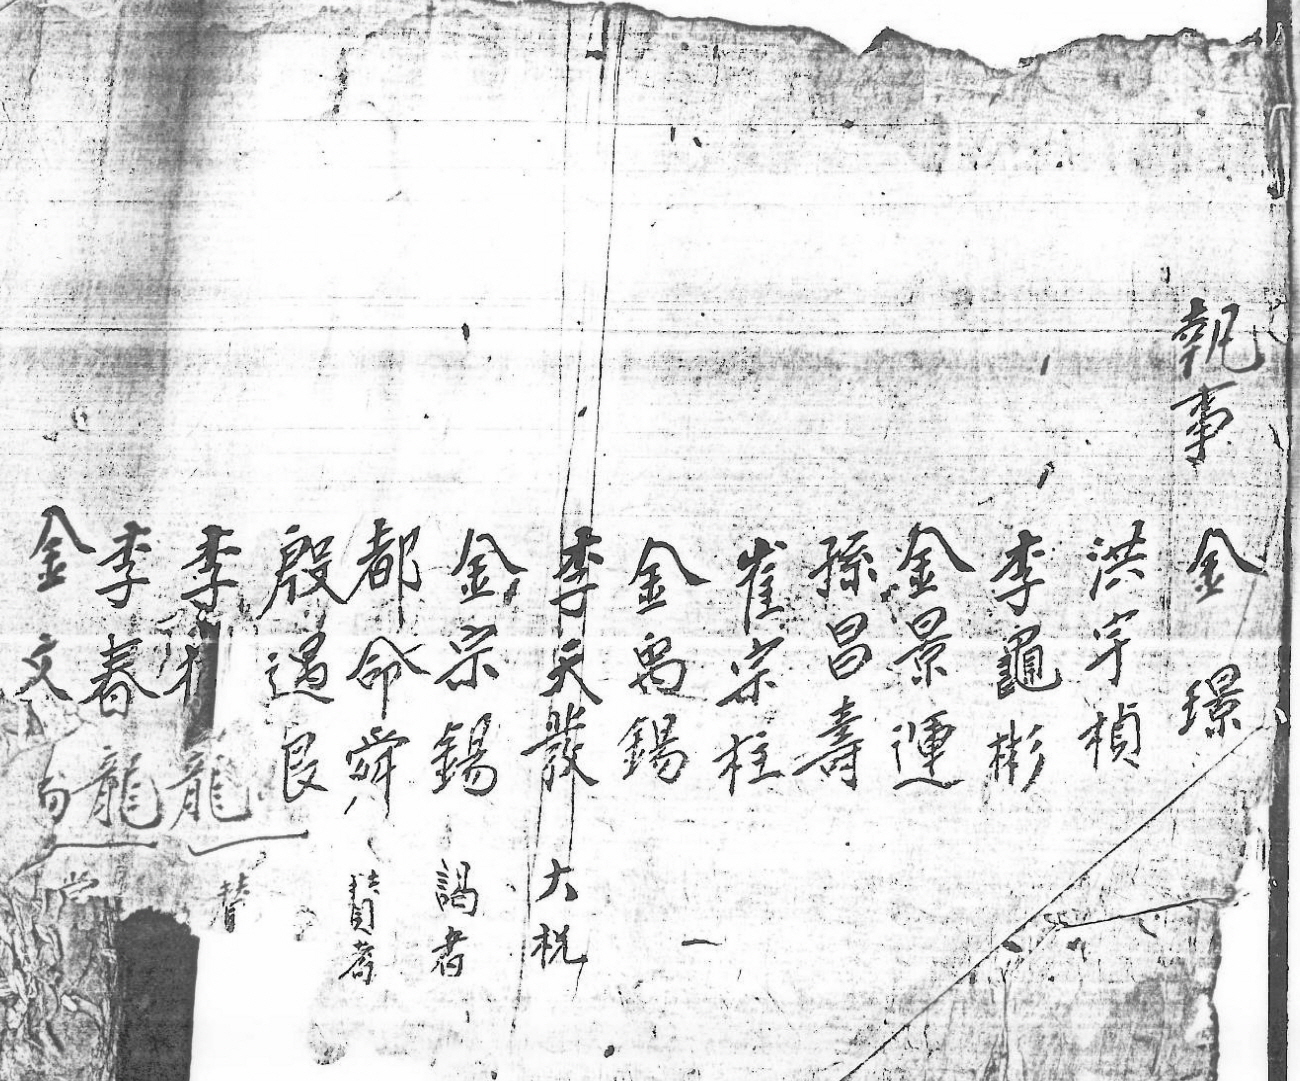 執事 金 璟
洪宇楨
李龜彬
金景運
孫昌壽
崔宗柱
金禹錫
李天發 大祝
金宗錫 謁者
都命舜 贊者
殷遇良
李 龍 贊
李春龍
金文